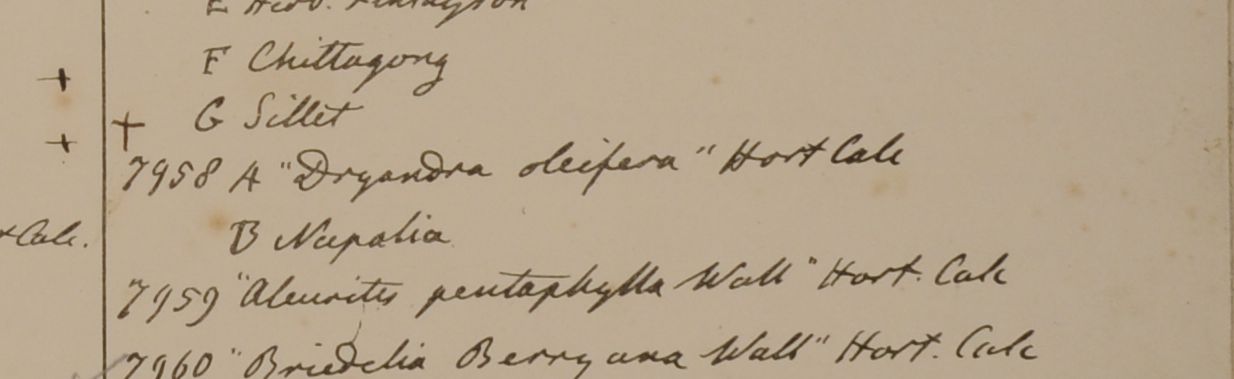 E Herb. Finlayson
+ F Chittagong
+ + G Sillet
7958 A "Dryandra oleifera" Hort Calc
Calc. B Napalia
7959 "Aleurites pentaphylla Wall" Hort. Calc
7960 "Briedelia Berryana Wall" Hort. Calc